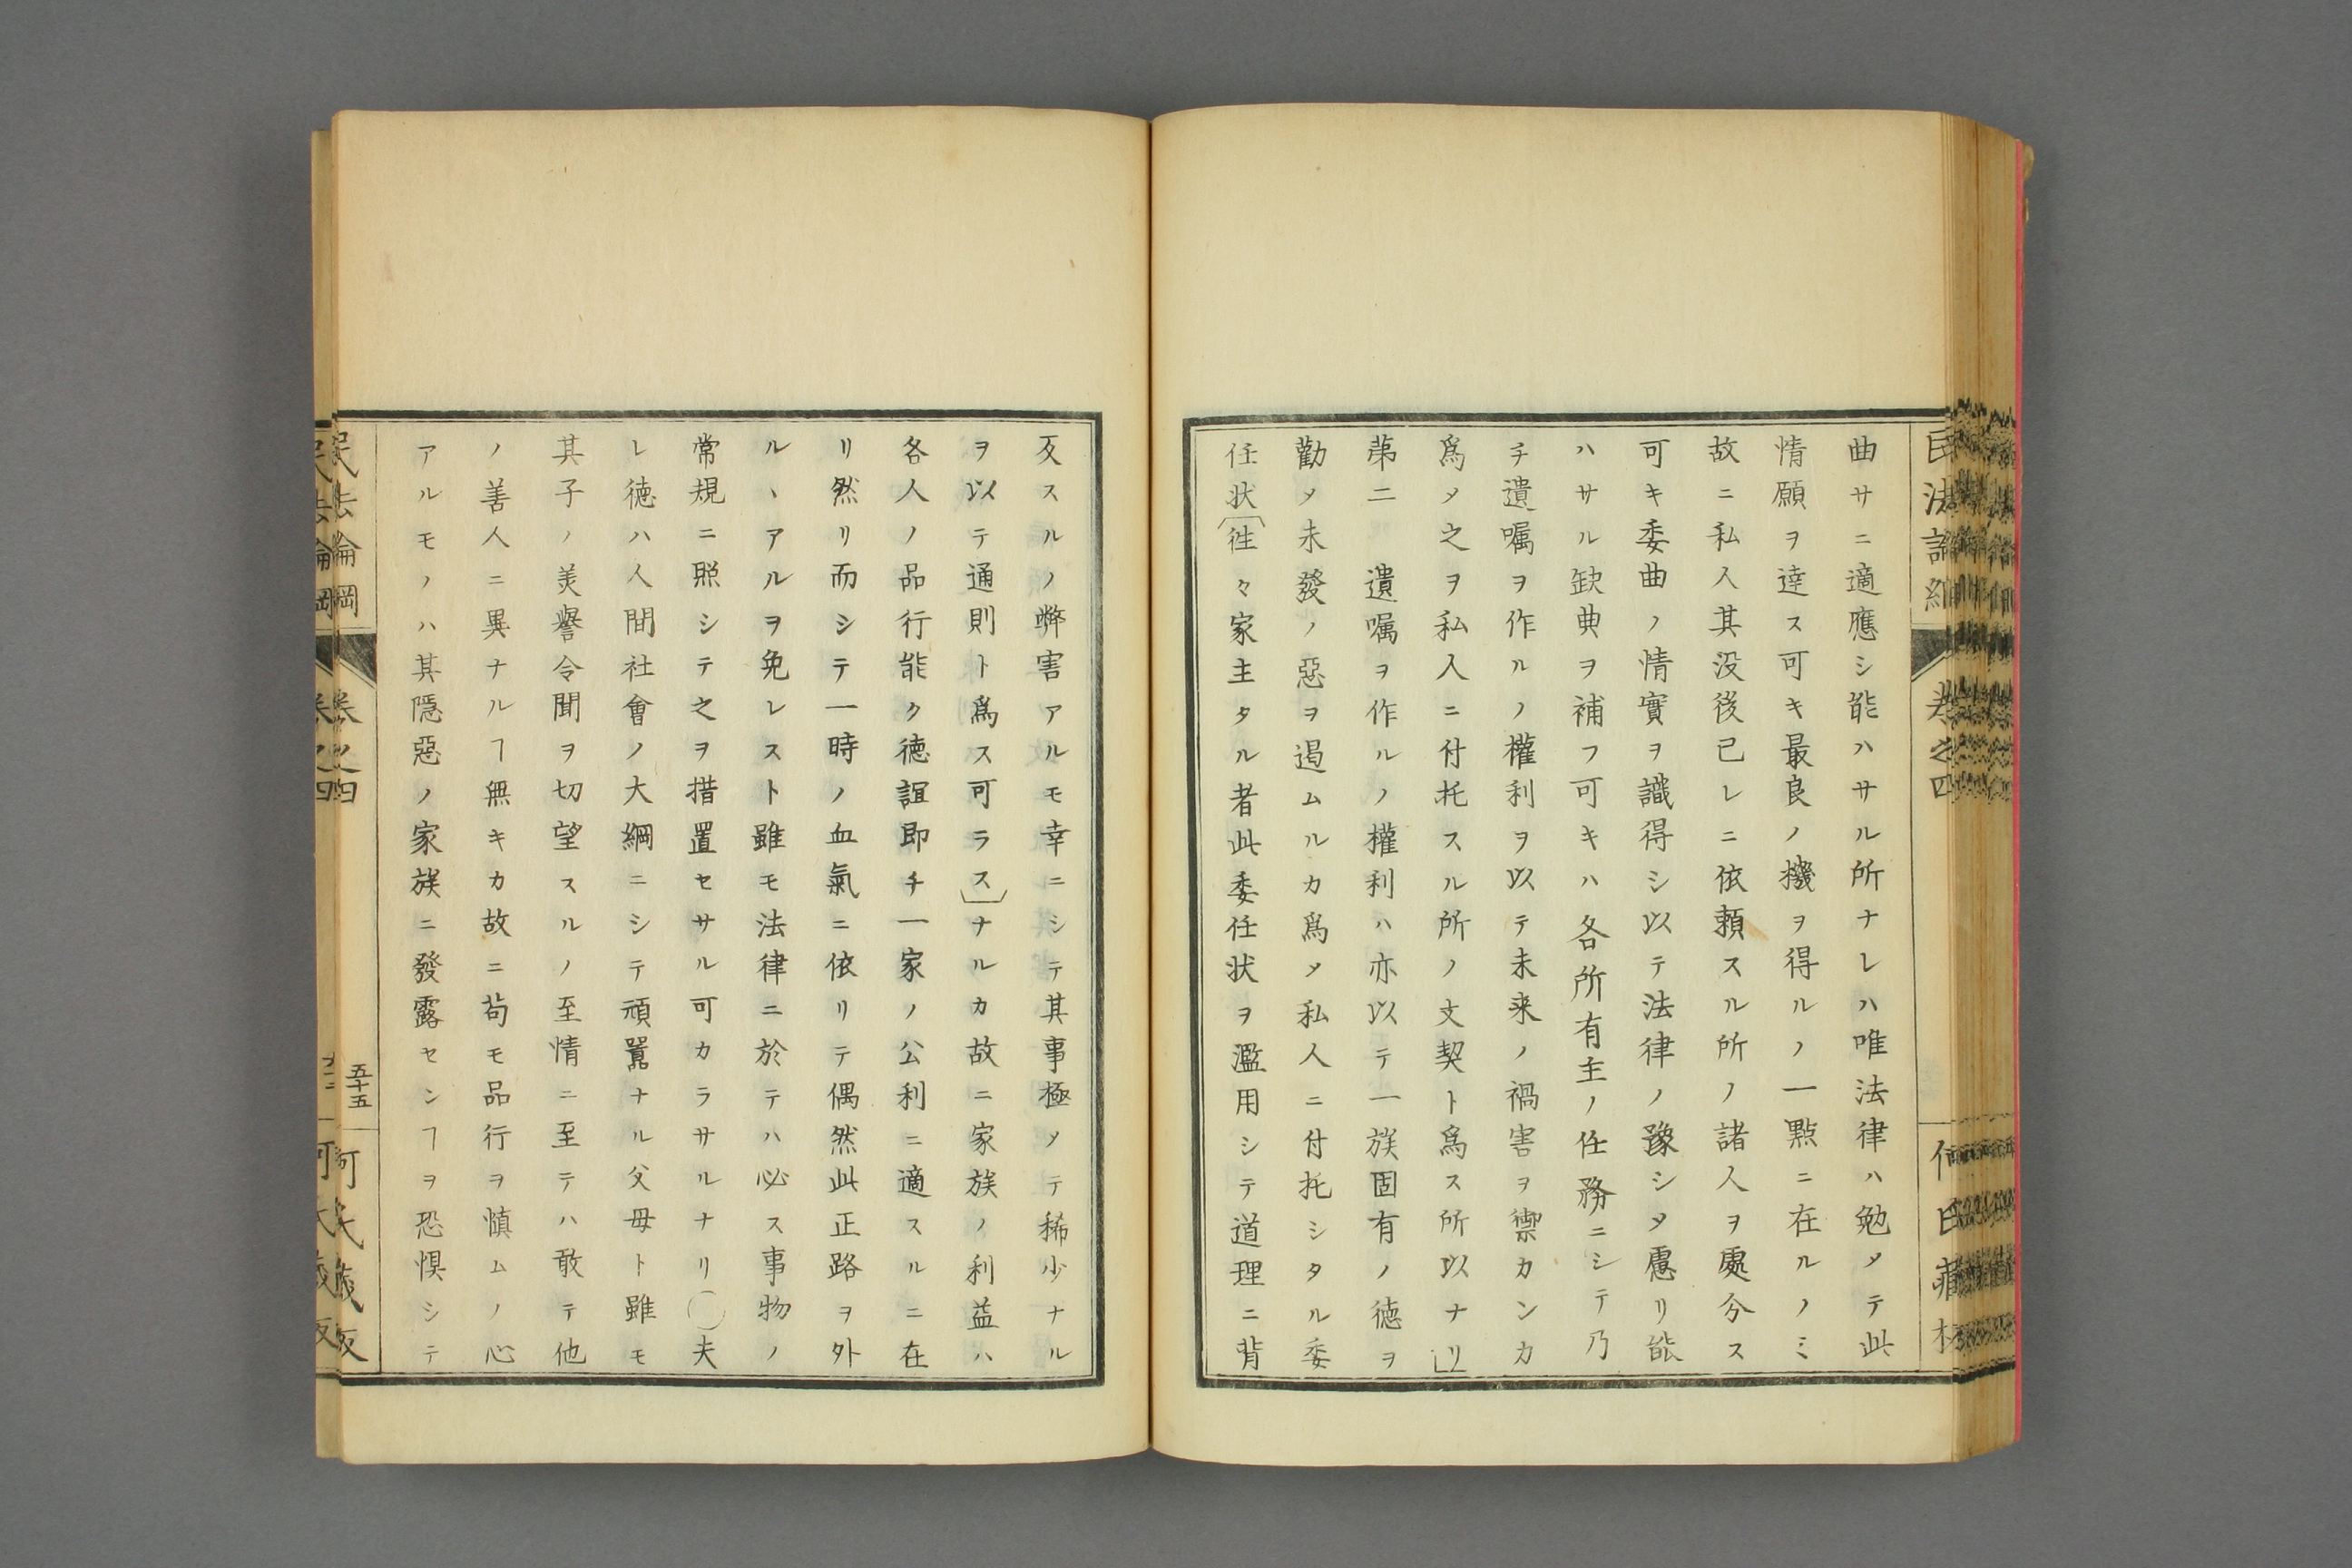 曲サニ適應シ能ハサル所ナレハ唯法律ハ勉メテ此
情願ヲ達ス可キ最良ノ機ヲ得ルノ一點ニ在ルノミ
故ニ私人其没後已レニ依頼スル所ノ諸人ヲ處分ス
可キ委曲ノ情實ヲ識得シ以テ法律ノ豫シメ慮リ能
ハサル缺典ヲ補フ可キハ各所有主ノ任務ニシテ乃
チ遺嘱ヲ作ルノ權利ヲ以テ未来ノ禍害ヲ禦カンカ
爲メ之ヲ私人ニ付托スル所ノ文契ト爲ス所以ナリ」
苐二 遺嘱ヲ作ルノ權利ハ亦以テ一族固有ノ徳ヲ
勸メ未發ノ惡ヲ遏ムルカ爲メ私人ニ付托シタル委
任状〔徃々家主タル者此委任状ヲ濫用シテ道理ニ背
反スルノ弊害アルモ幸ニシテ其事極メテ稀少ナル
ヲ以テ通則ト爲ス可ラス〕ナルカ故ニ家族ノ利益ハ
各人ノ品行能ク徳誼即チ一家ノ公利ニ適スルニ在
リ然リ而シテ一時ノ血氣ニ依リテ偶然此正路ヲ外
ルヽアルヲ免レスト雖モ法律ニ於テハ必ス事物ノ
常規ニ照シテ之ヲ措置セサル可カラサルナリ○夫
レ徳ハ人間社會ノ大綱ニシテ頑嚚ナル父母ト雖モ
其子ノ美譽令聞ヲ切望スルノ至情ニ至テハ敢テ他
ノ善人ニ異ナルヿ無キカ故ニ苟モ品行ヲ慎ムノ心
アルモノハ其隱惡ノ家族ニ發露センヿヲ恐惧シテ
五十五